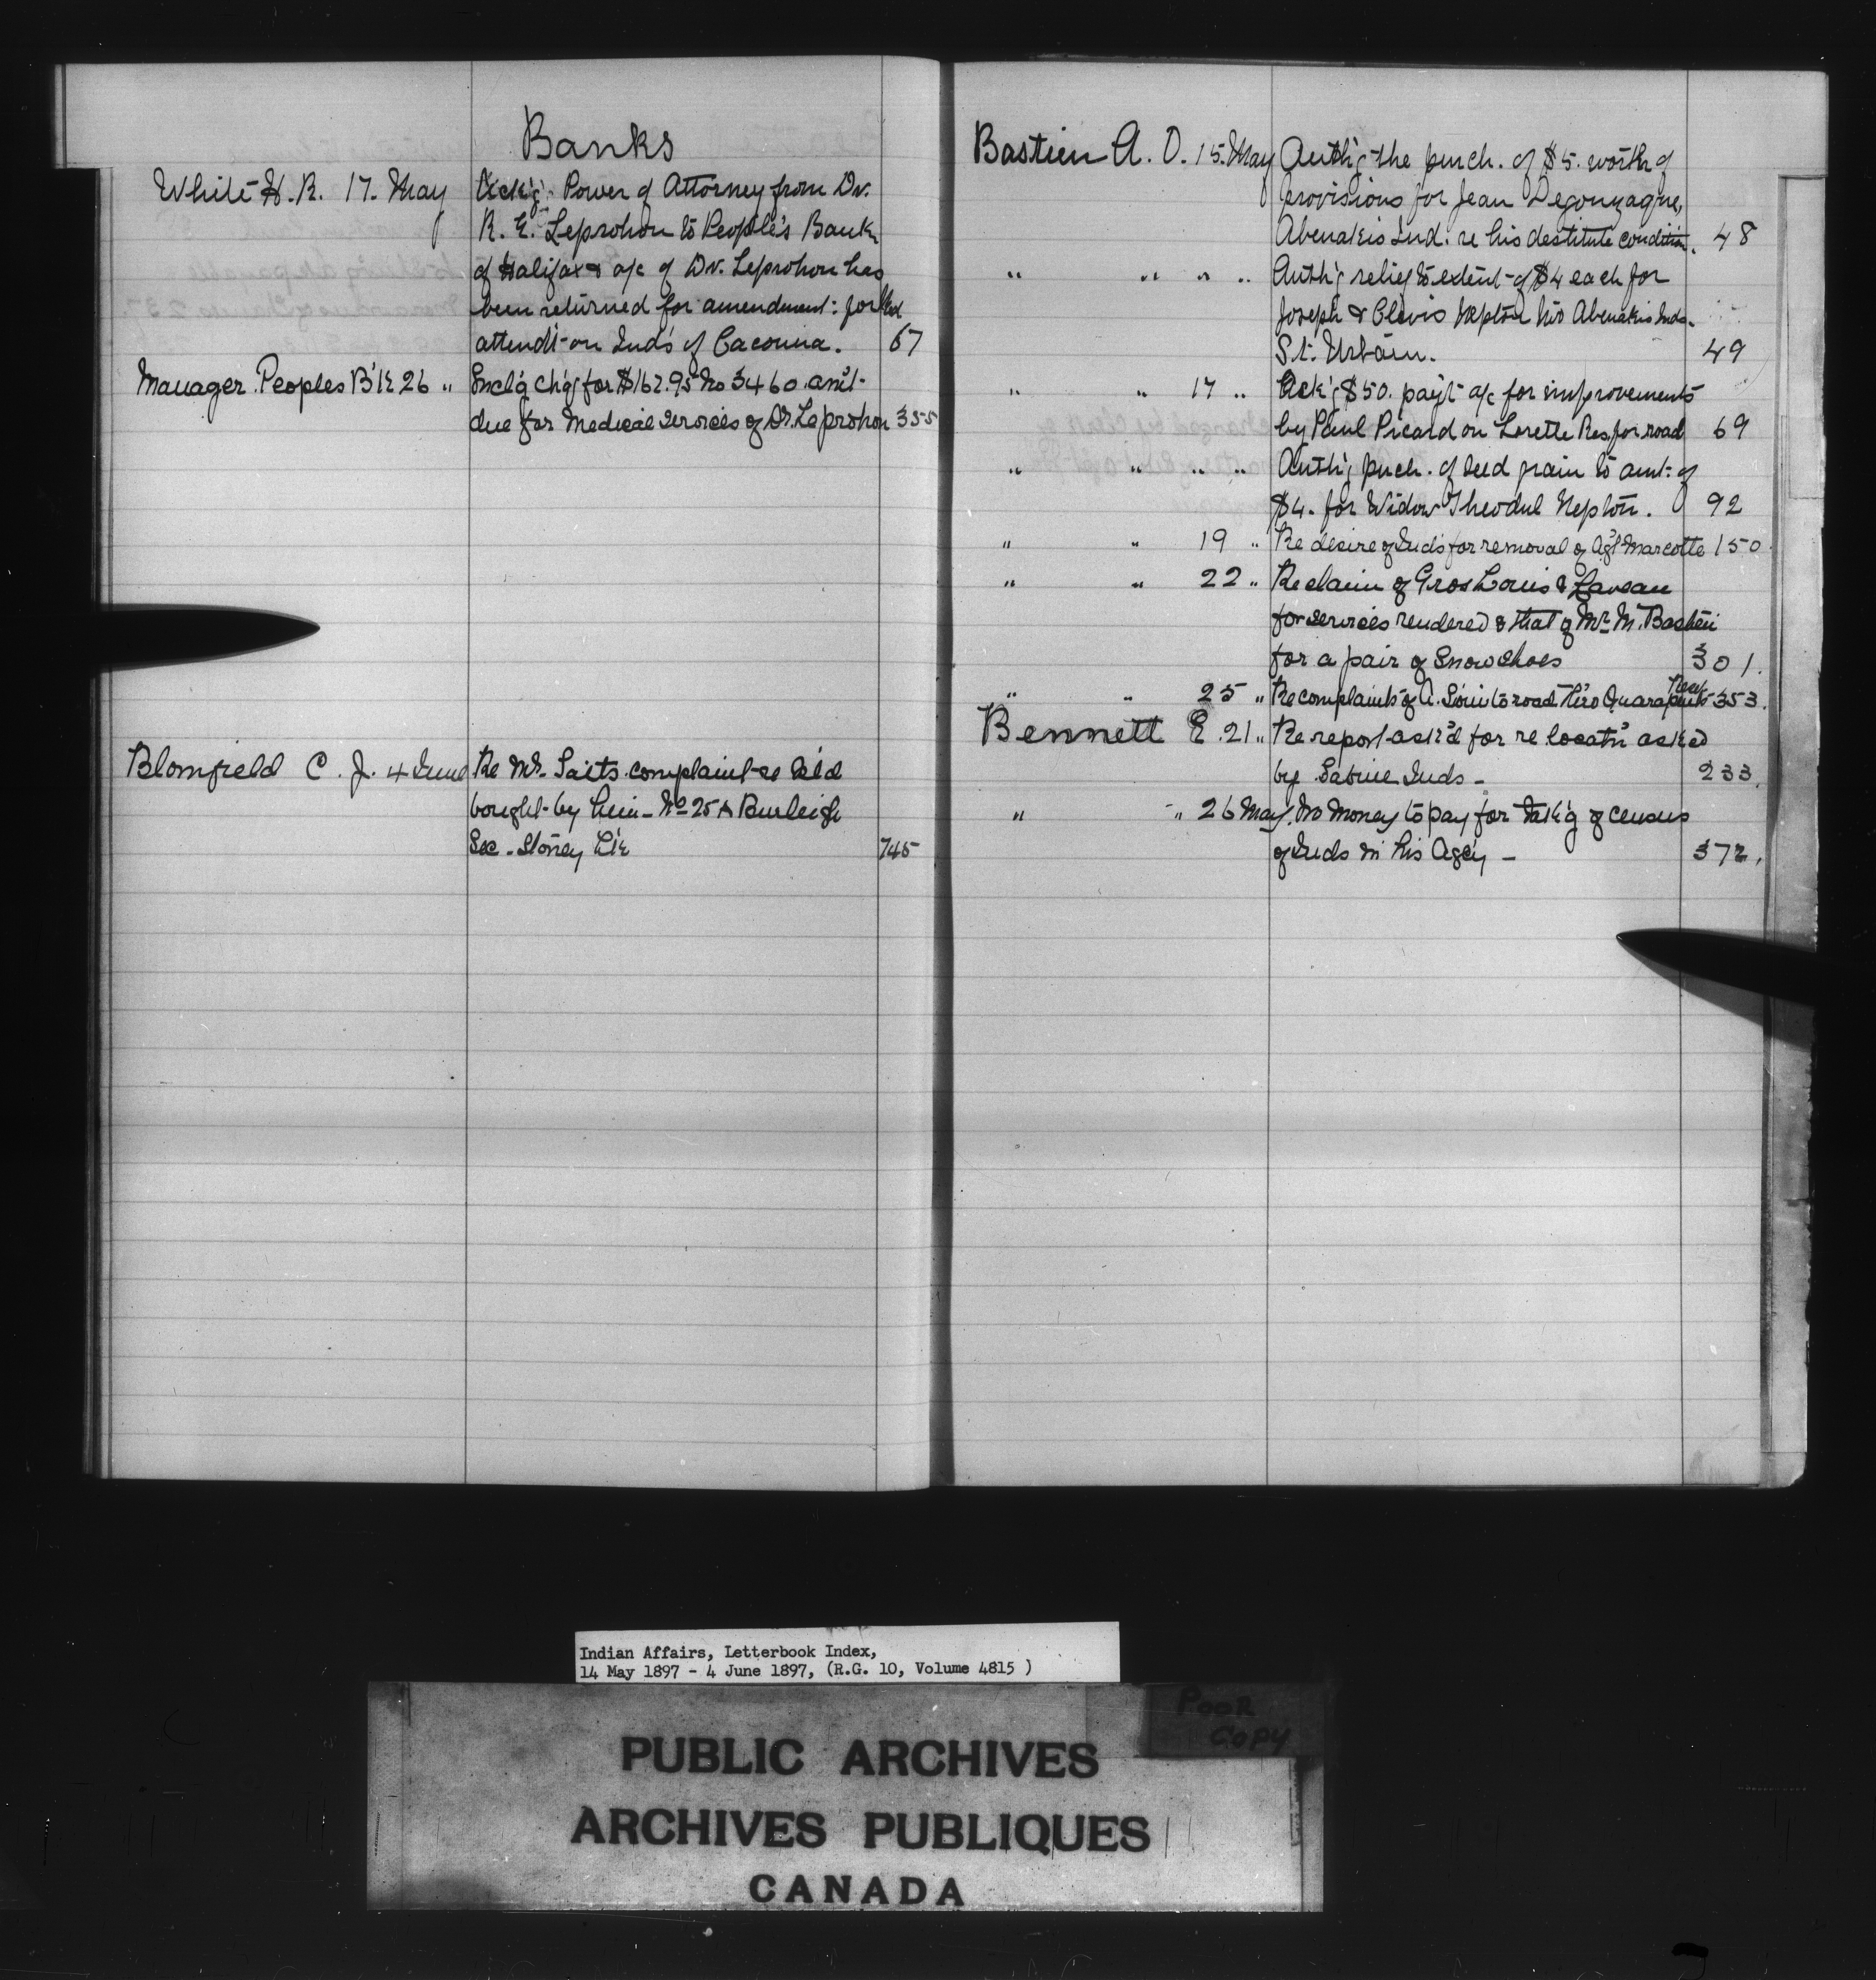 Banks
White H. R. 17. May Ack'g. Power of Attorney from Dr.
R. E. Leprohon to People's Bank
of Halifax & a/c of Dr. Leprohon has
been returned for amendment: for Med
attend't on Ind's of Cacouna. 67
Manager Peoples B'k 26 " Encl'g ch'q for $162.95 No 3460 am't
due for Medical services of Dr. Leprohon 355
Blomfield C. J. 4 June Re Mr. complaint re
bought by him - No 25 A Burleigh
Sec. Stoney 745
Bastien A. O. 15. May Auth'g the purch. of $5. worth of
provisions for Jean Degonzague,
Abenakis Ind. re his destitute condition. 48
" " " " Auth'g relief to extent of $4 each for
Joseph & Clovis Nepton two Abenakis Inds.
St. Urbain. 49
" " 17 " Ack'g $50. pay't a/c for improvements
by Paul Picard on Lorette Res. for road 69
" " " " Auth'g purch. of seed grain to amt. of
$4. for Widow Theodul Nepton. 92
" " 19 " Re desire of Inds for removal of Agt Marcotte 150
" " 22 " Re claim of Gros Louis &
for services rendered & that of Mr. M. Bastien
for a pair of Snowshoes 301.
" " 25 " Re complaints of A. Sioui to road thro Quarante 353.
Bennett E. 21 " Re report ask'd for re locat'n asked
by Inds - 233.
" " 26 May. No money to pay for tak'g of census
of Inds in his Agcy - 372.
Indian Affairs, Letterbook Index,
14 May 1897 - 4 June 1897, (R.G. 10, Volume 4815 )
POOR
COPY
PUBLIC ARCHIVES
ARCHIVES PUBLIQUES
CANADA